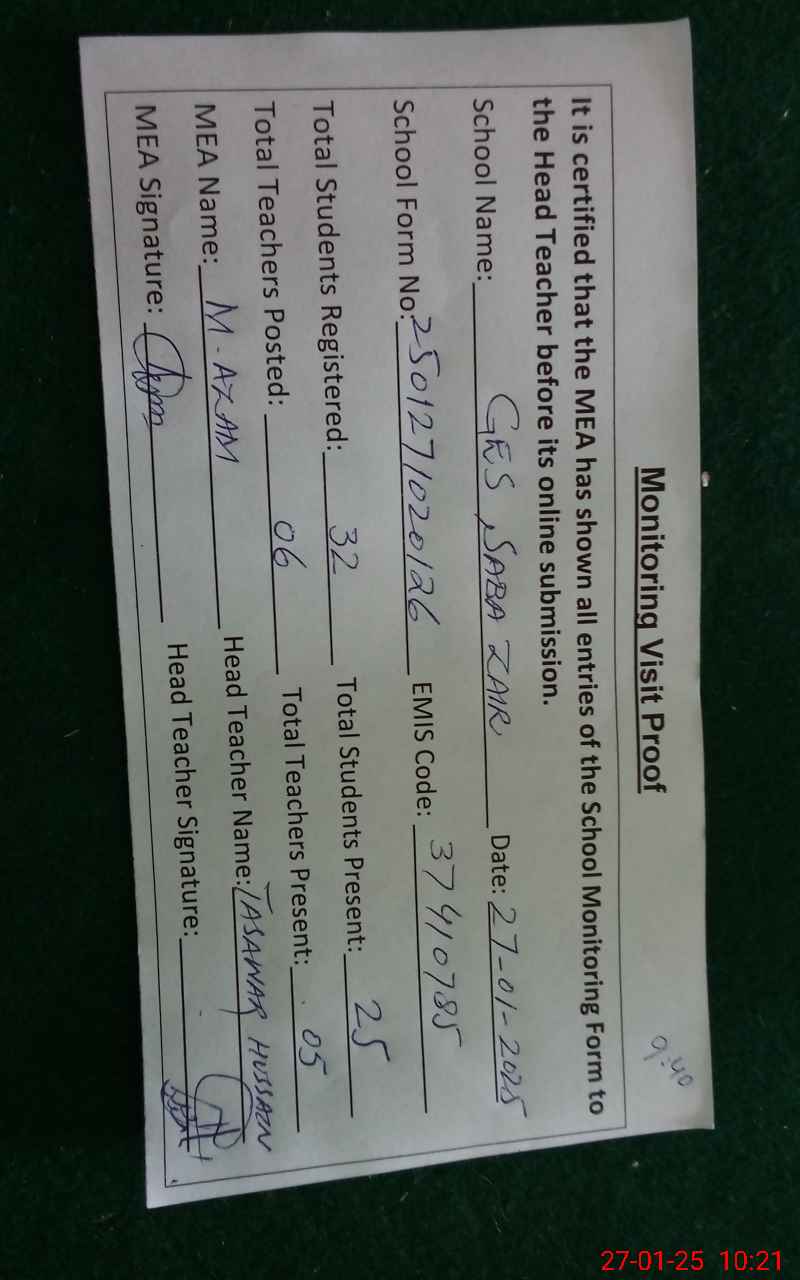 9:40
Monitoring Visit Proof
It is certified that the MEA has shown all entries of the School Monitoring Form to
the Head Teacher before its online submission.
School Name: GES SABA ZAIR Date: 27-01-2025
School Form No: 2501271020126 EMIS Code: 37410785
Total Students Registered: 32 Total Students Present: 25
Total Teachers Posted: 06 Total Teachers Present: 05
MEA Name: M. AZAM Head Teacher Name: TASAWAR HUSSAIN
MEA Signature: Head Teacher Signature:
27-01-25 10:21